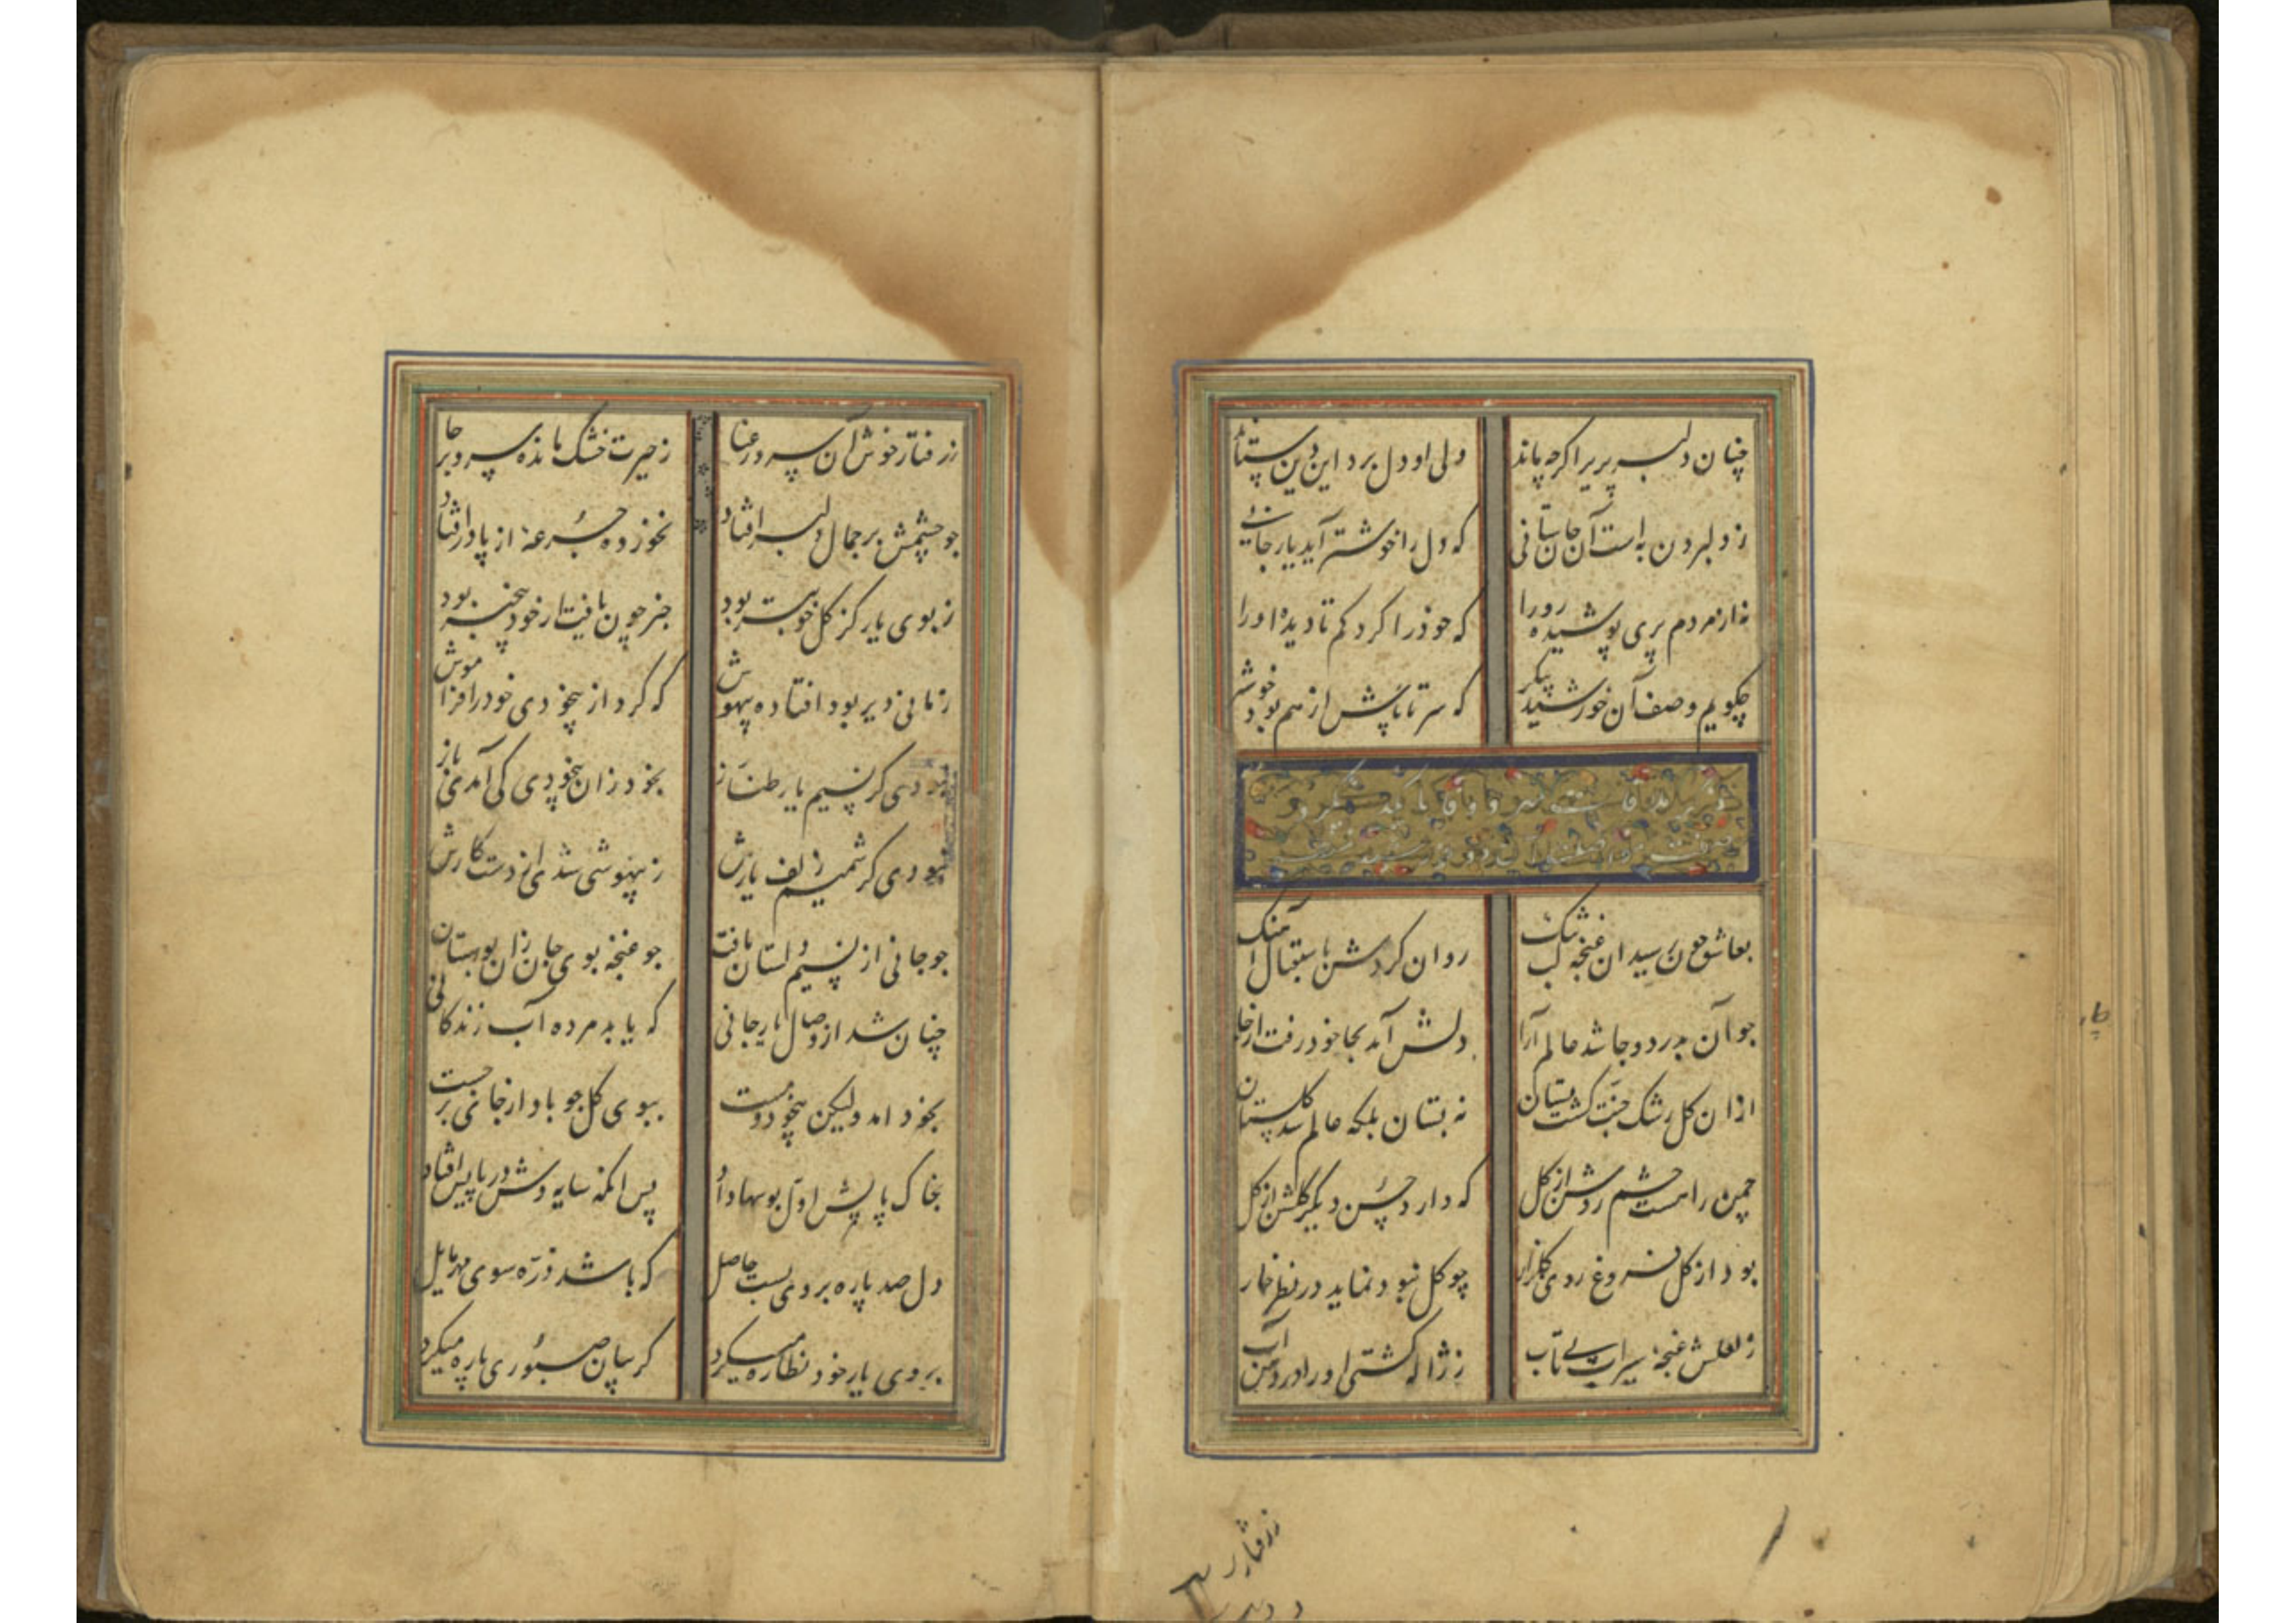 چنان دلبر پریرا کرچه ماند ولی او دل برد این دین ستاند
ز دلبردن به است آن جان ستانی که دل را خوشتر آید یار جانی
نه از مردم پری پوشیده رو را که خود را کرد کم تا دیده او را
چکویم وصف آن خورشید پیکر که سر تا پاش از هم بود خوشتر
بعاشق چون رسید ان غنچه لب تنک روان کردش باستقبال آهنک
جو آن بدر دوجا شد عالم آرا دلش آمد بجا خود رفت از جا
ازان کل رشک جنت کشت بستان نه بستان بلکه عالم شد کلستان
چمن را هست چشم روشن از کل که دارد حسن دیکر کلشن از کل
بود از کل فروغ روی کلزار چو کل نبود نماید در نظر خار
ز لعلش غنچهٔ سیراب بی تاب ز ژاله کشتی او را در دهن آب
ز رفتار
ز رفتار خوش آن سرو رعنا ز حیرت خشک مانده سرو بر جا
جو چشمش بر جمال دلبر افتاد نخورده جرعهٔ از پا در افتاد
ز بوی یار کز کل خوبتر بود خبر چون یافت از خود بیخبر بود
زمانی دیر بود افتاده بیهوش که کرد از بیخودی خود را فراموش
نبودی کر نسیم یار طناز بخود زان بیخودی کی آمدی باز
نبودی کر شمیم زلف یارش ز بیهوشی شدی از دست کارش
جو جانی از نسیم دلستان یافت جو غنچه بوی جان زان بوستان
چنان شد از وصال یار جانی که یابد مرده آب زندکانی
بخود امد ولیکن بیخود و مست ببوی کل جو باد از جای برجست
بخاک پایش اول بوسها داد پس انکه سایه وش در پایش افتاد
دل صد پاره بر وی بست حاصل که باشد ذره سوی مهر مایل
بروی یار خود نظاره میکرد کریبان صبوری پاره میکرد